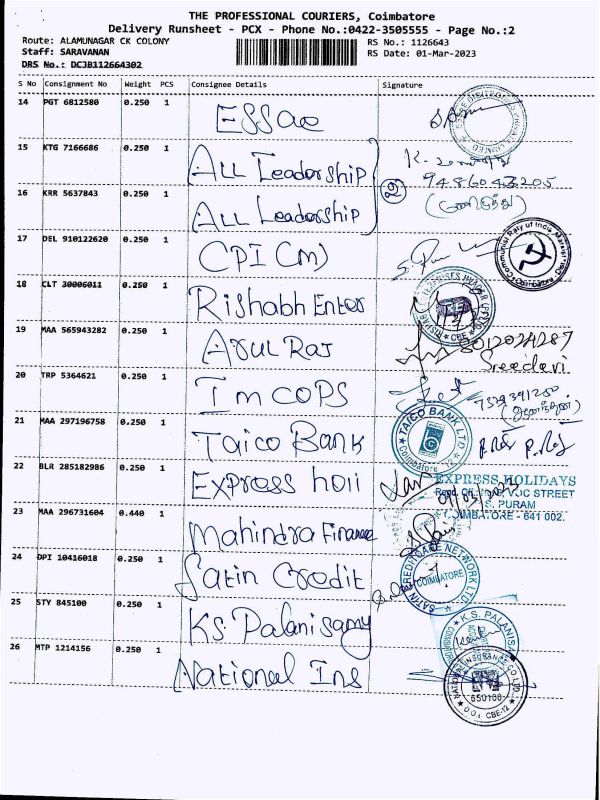 THE PROFESSIONAL COURIERS, Coimbatore
Delivery Runsheet - PCX - Phone No.:0422-3505555 - Page No.:2
Route: ALAMUNAGAR CK COLONY
RS No.: 1126643
Staff: SARAVANAN
RS Date: 01-Mar-2023
DRS No.: DCJB112664302
S No Consignment No Weight PCS Consignee Details Signature
14 PGT 6812580 0.250 1 Essae
15 KTG 7166686 0.250 1 ALL Leadership
9486043205
16 KRR 5637843 0.250 1 ALL Leadership
17 DEL 910122620 0.250 1 CPI (m)
Communist Party of India Marxist
Coimbatore
18 CLT 30006011 0.250 1 Rishabh Enter
CBE
19 MAA 565943282 0.250 1 Arul Raj
8012024287
Sreedevi
20 TRP 5364621 0.250 1 Imcops
21 MAA 297196758 0.250 1 Taico Bank
TAICO BANK LTD
Coimbatore - 12
22 BLR 285182986 0.250 1 Express holi
EXPRESS HOLIDAYS
VJC STREET
S. PURAM
COIMBATORE - 641 002.
23 MAA 296731604 0.440 1 Mahindra Finance
24 DPI 10416018 0.250 1 Satin Credit
SATIN CREDITCARE NETWORK LTD.
COIMBATORE
25 STY 845100 0.250 1 KS. Palanisamy
K.S. PALANISA
26 MTP 1214156 0.250 1 National Ins
NATIONAL INSURANCE CO LTD
650100
D.O.I. CBE-12